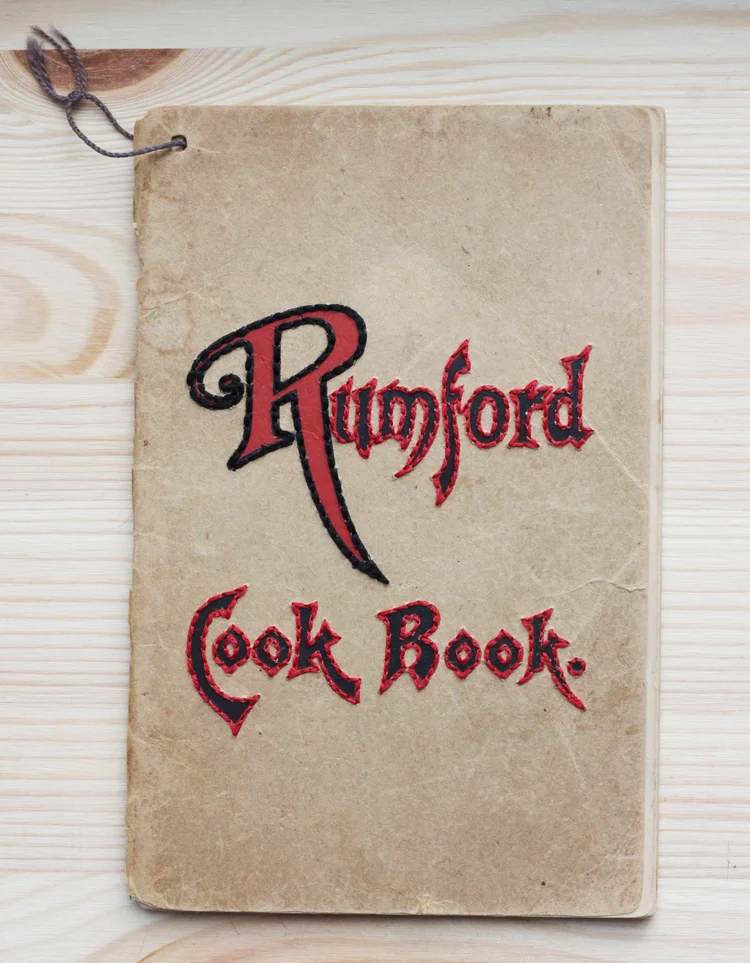 Rumford
Cook Book.